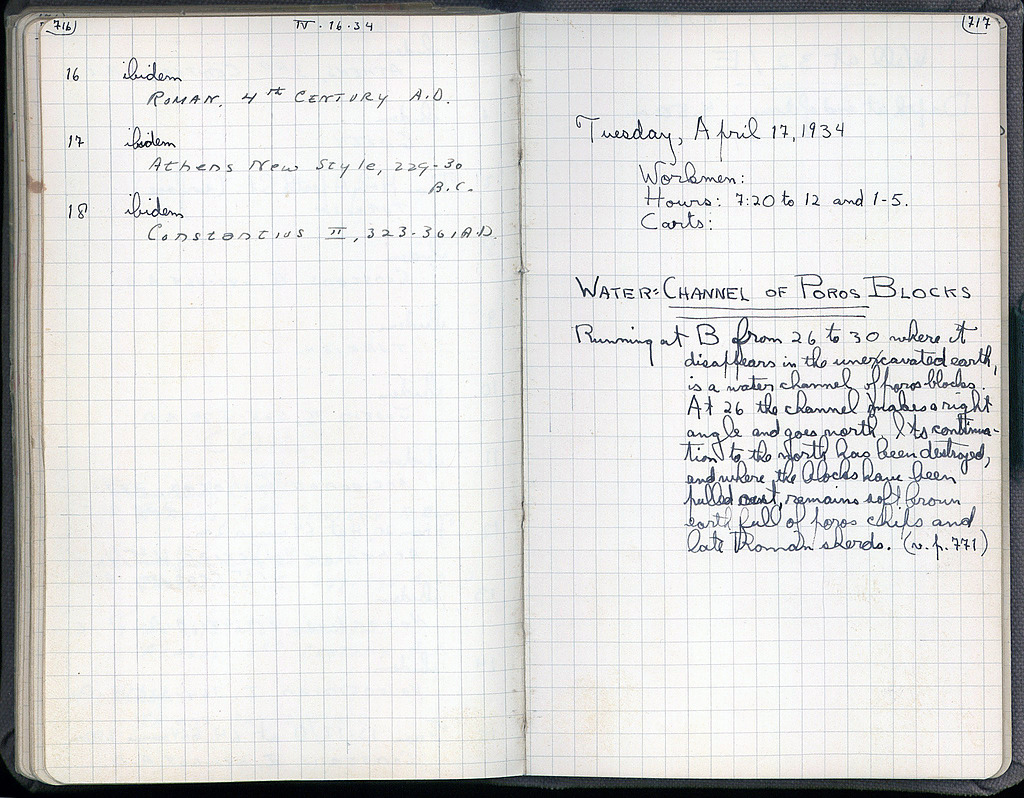 716
IV · 16 · 34
16 ibidem
ROMAN, 4th CENTURY A.D.
17 ibidem
Athens New Style, 229-30
B.C.
18 ibidem
Constantius II, 323-361 A.D.
717
Tuesday, April 17, 1934
Workmen:
Hours: 7:20 to 12 and 1-5.
Carts:
WATER-CHANNEL OF POROS BLOCKS
Running at B from 26 to 30 where it
disappears in the unexcavated earth,
is a water channel of poros blocks.
At 26 the channel makes a right
angle and goes north. Its continua-
tion to the north has been destroyed,
and where the blocks have been
pulled out, remains soft brown
earth full of poros chips and
late Roman sherds. (v. p. 771)